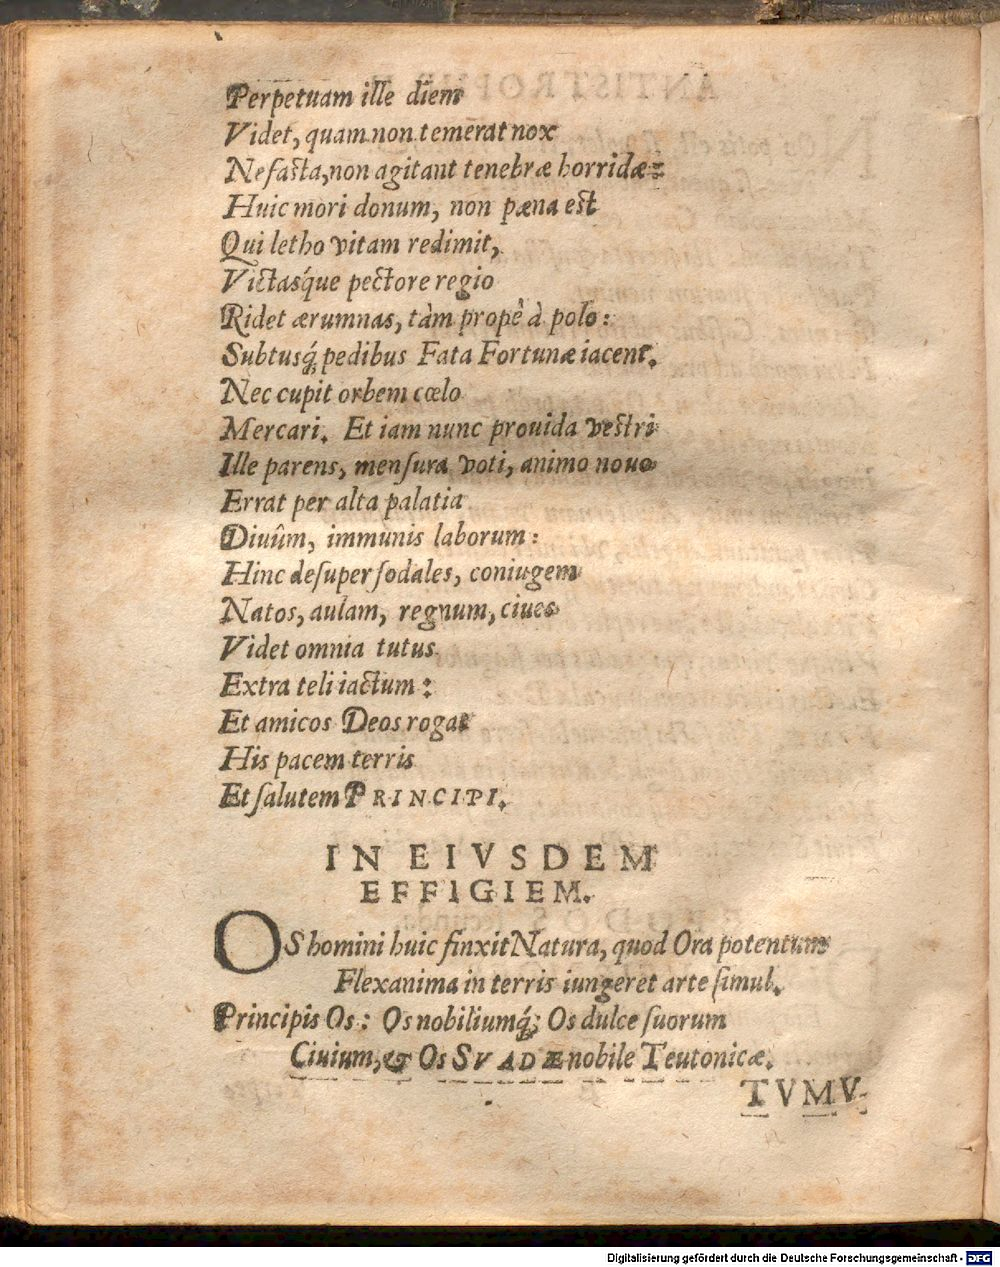 Perpetuam ille diem
Videt, quam non temerat nox
Nefasta, non agitant tenebræ horridæ:
Huic mori donum, non pæna est
Qui letho vitam redimit,
Victasq́ue pectore regio
Ridet ærumnas, tàm propè à polo:
Subtusq́; pedibus Fata Fortunæ iacent.
Nec cupit orbem cœlo
Mercari. Et iam nunc prouida vestri
Ille parens, mensura voti, animo nouo
Errat per alta palatia
Diuûm, immunis laborum:
Hinc desuper sodales, coniugem
Natos, aulam, regnum, ciues
Videt omnia tutus
Extra teli iactum:
Et amicos Deos rogat
His pacem terris
Et salutem PRINCIPI.
IN EIVSDEM
EFFIGIEM.
OS homini huic finxit Natura, quod Ora potentum
Flexanima in terris iungeret arte simul.
Principis Os: Os nobiliumq́; Os dulce suorum
Ciuium, & Os SVADÆ nobile Teutonicæ.
TVMV-
Digitalisierung gefördert durch die Deutsche Forschungsgemeinschaft - DFG